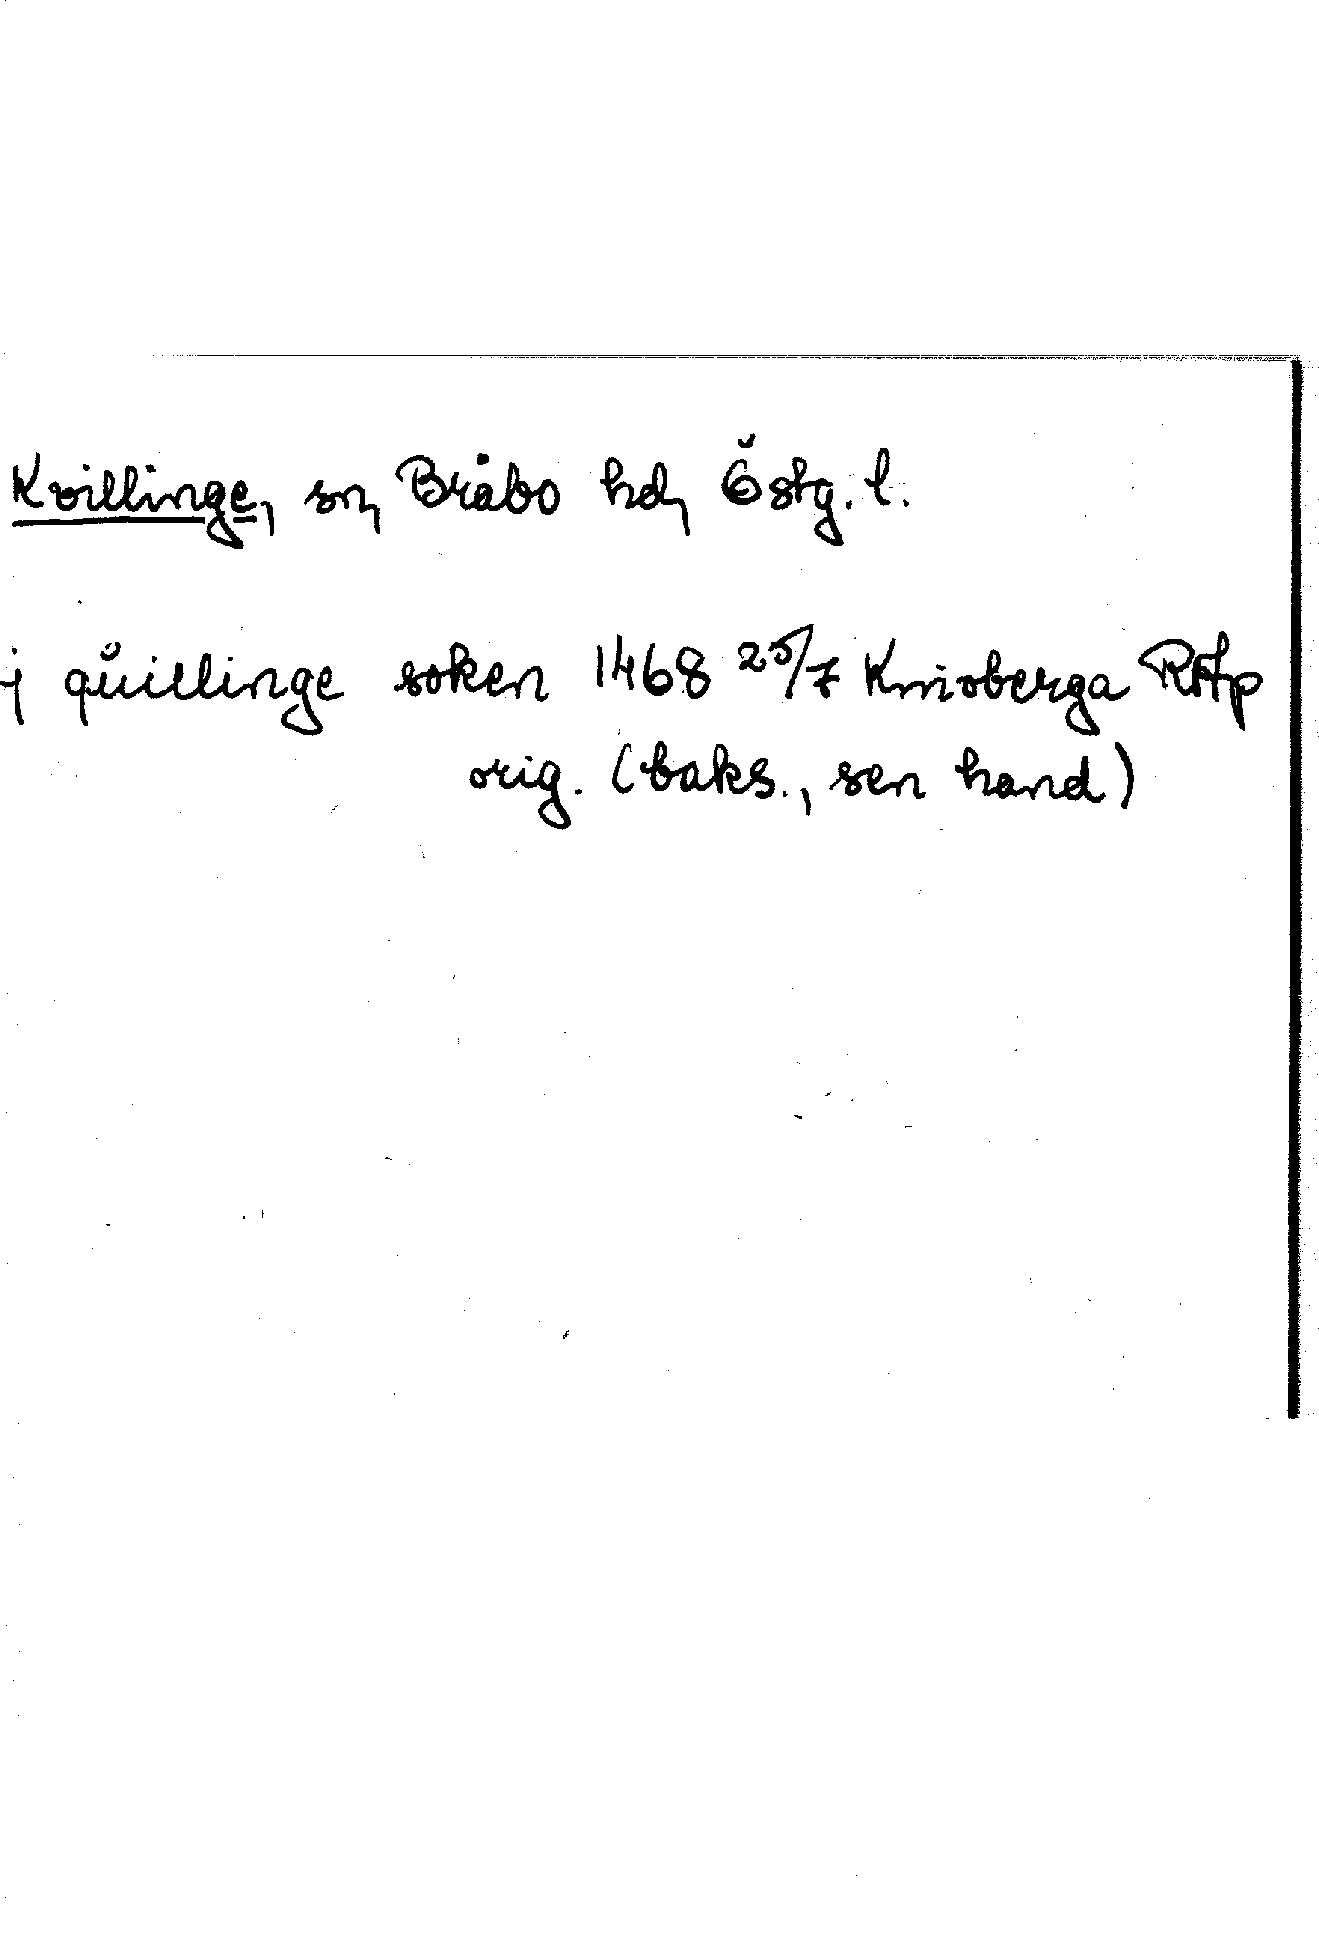 Kvillinge, sn, Bråbo hd, Östg. l.
j qŭillinge soken 1468 25/7 Knivberga RAp
orig. (baks., sen hand)